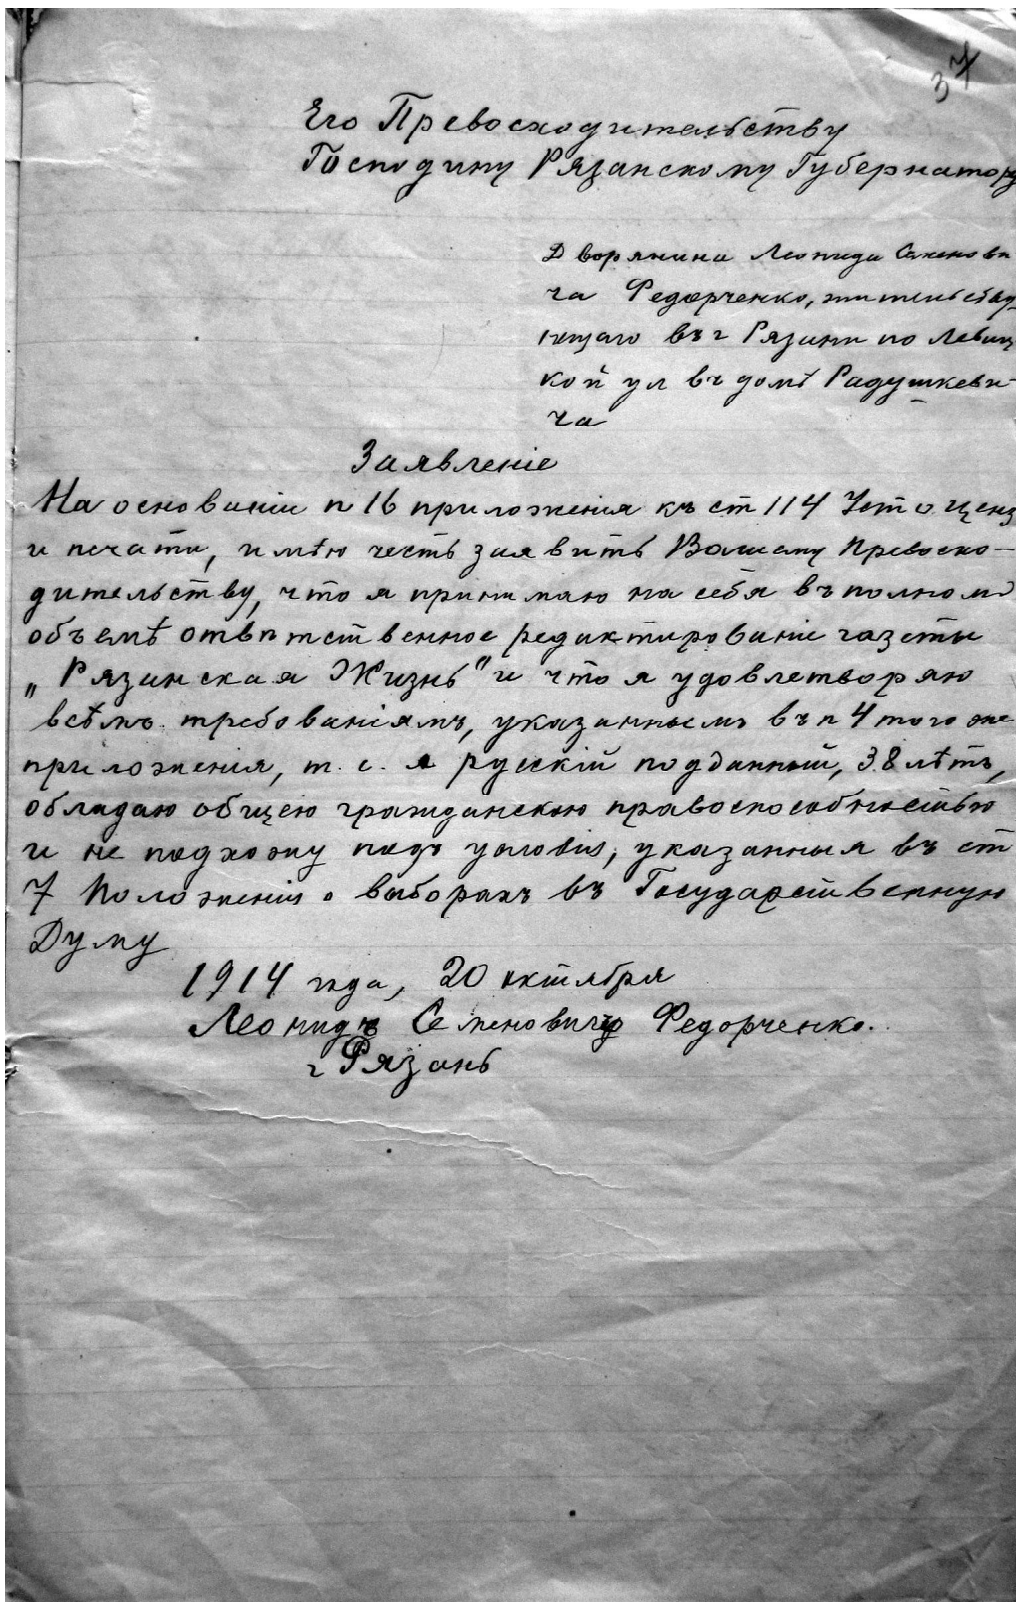 37
Его Превосходительству
Господину Рязанскому Губернатору
Дворянина Леонида Семенови
ча Федорченко, жительству-
ющаго въ г Рязани по Левиц
кой ул въ домѣ Радушкеви-
ча
Заявленіе
На основаніи п 16 приложенія къ ст 114 Уст о ценз
и печати, имѣю честь заявить Вашему Превосхо-
дительству, что я принимаю на себя въ полномъ
объемѣ отвѣтственное редактированіе газеты
„Рязанская Жизнь" и что я удовлетворяю
всѣмъ требованіямъ, указаннымъ въ п 4 того же
приложенія, т. е. я русскій подданный, 38 лѣтъ,
обладаю общею гражданскою правоспособностью
и не подхожу подъ условія, указанныя въ ст
7 Положенія о выборахъ въ Государственную
Думу
1914 года, 20 октября
Леонидъ Семеновичъ Федорченко.
г Рязань